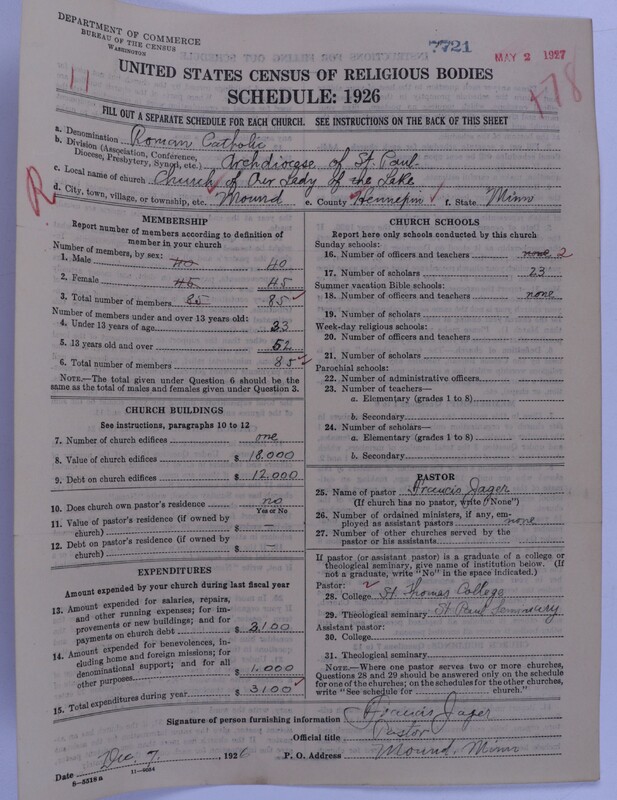 DEPARTMENT OF COMMERCE
BUREAU OF THE CENSUS
WASHINGTON
7721
MAY 2 1927
11
+78
UNITED STATES CENSUS OF RELIGIOUS BODIES
SCHEDULE: 1926
FILL OUT A SEPARATE SCHEDULE FOR EACH CHURCH. SEE INSTRUCTIONS ON THE BACK OF THIS SHEET
a. Denomination Roman Catholic
b. Division (Association, Conference,
Diocese, Presbytery, Synod, etc.) Archdiocese of St. Paul.
c. Local name of church Church of Our Lady of the Lake
R
d. City, town, village, or township, etc. Mound e. County Hennepin f. State Minn
MEMBERSHIP
Report number of members according to definition of
member in your church
Number of members, by sex:
1. Male 40 40
2. Female 45 45
3. Total number of members 85 85
Number of members under and over 13 years old:
4. Under 13 years of age 33
5. 13 years old and over 52
6. Total number of members 85
NOTE.—The total given under Question 6 should be the
same as the total of males and females given under Question 3.
CHURCH BUILDINGS
See instructions, paragraphs 10 to 12
7. Number of church edifices one
8. Value of church edifices $ 18.000
9. Debt on church edifices $ 12,000
10. Does church own pastor's residence? no
Yes or No
11. Value of pastor's residence (if owned by
church) $ —
12. Debt on pastor's residence (if owned by
church) $ —
EXPENDITURES
Amount expended by your church during last fiscal year
13. Amount expended for salaries, repairs,
and other running expenses; for im-
provements or new buildings; and for
payments on church debt $ 2,100
14. Amount expended for benevolences, in-
cluding home and foreign missions; for
denominational support; and for all
other purposes $ 1.000
15. Total expenditures during year $ 3100
CHURCH SCHOOLS
Report here only schools conducted by this church
Sunday schools:
16. Number of officers and teachers none 2
17. Number of scholars 23
Summer vacation Bible schools:
18. Number of officers and teachers none
19. Number of scholars
Week-day religious schools:
20. Number of officers and teachers
21. Number of scholars
Parochial schools:
22. Number of administrative officers
23. Number of teachers—
a. Elementary (grades 1 to 8)
b. Secondary
24. Number of scholars—
a. Elementary (grades 1 to 8)
b. Secondary
PASTOR
25. Name of pastor Francis Jager
(If church has no pastor, write "None")
26. Number of ordained ministers, if any, em-
ployed as assistant pastors none
27. Number of other churches served by the
pastor or his assistants
If pastor (or assistant pastor) is a graduate of a college or
theological seminary, give name of institution below. (If
not a graduate, write "No" in the space indicated.)
Pastor: 2
28. College St. Thomas College
29. Theological seminary St Paul Seminary
Assistant pastor:
30. College
31. Theological seminary
NOTE.—Where one pastor serves two or more churches,
Questions 28 and 29 should be answered only on the schedule
for one of the churches; on the schedules for the other churches,
write "See schedule for church."
Signature of person furnishing information Francis Jager
Official title Pastor
Date Dec. 7, 1926 P. O. Address Mound, Minn
8-5318a 11-9064